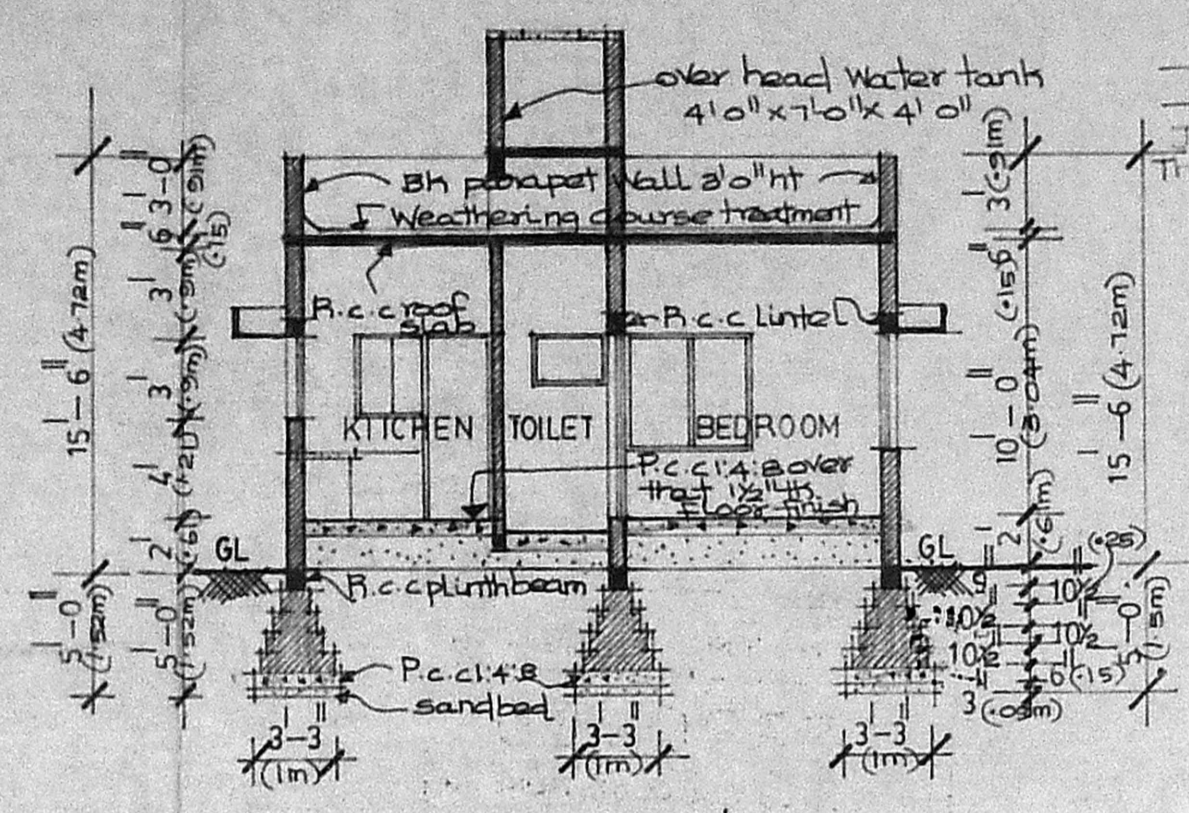 over head water tank
4'0" x 7'0" x 4'0"
Bk parapet wall 3'0" ht
Weathering course treatment
R.c.c roof
slab
R.c.c Lintel
KITCHEN
TOILET
BEDROOM
P.c.c 1:4:8 over
that 1½" th
Floor finish
GL
GL
R.c.c plinth beam
P.c.c 1:4:8
sand bed
15'-6" (4.72m)
5'-0"
(1.52m)
3'-0"
(.91m)
6"
(.15)
3' (.9m)
3' (.9m)
4' (1.21)
2' (.6)
5'-0"
(1.52m)
3' (.91m)
6"
(.15)
10'-0"
(3.04m)
2' (.61m)
15'-6" (4.72m)
(.25)
9"
10½"
10½"
10½"
10½"
6" (.15)
3"
5'-0"
(1.5m)
3'-3"
(1m)
3'-3"
(1m)
3'-3"
(1m)